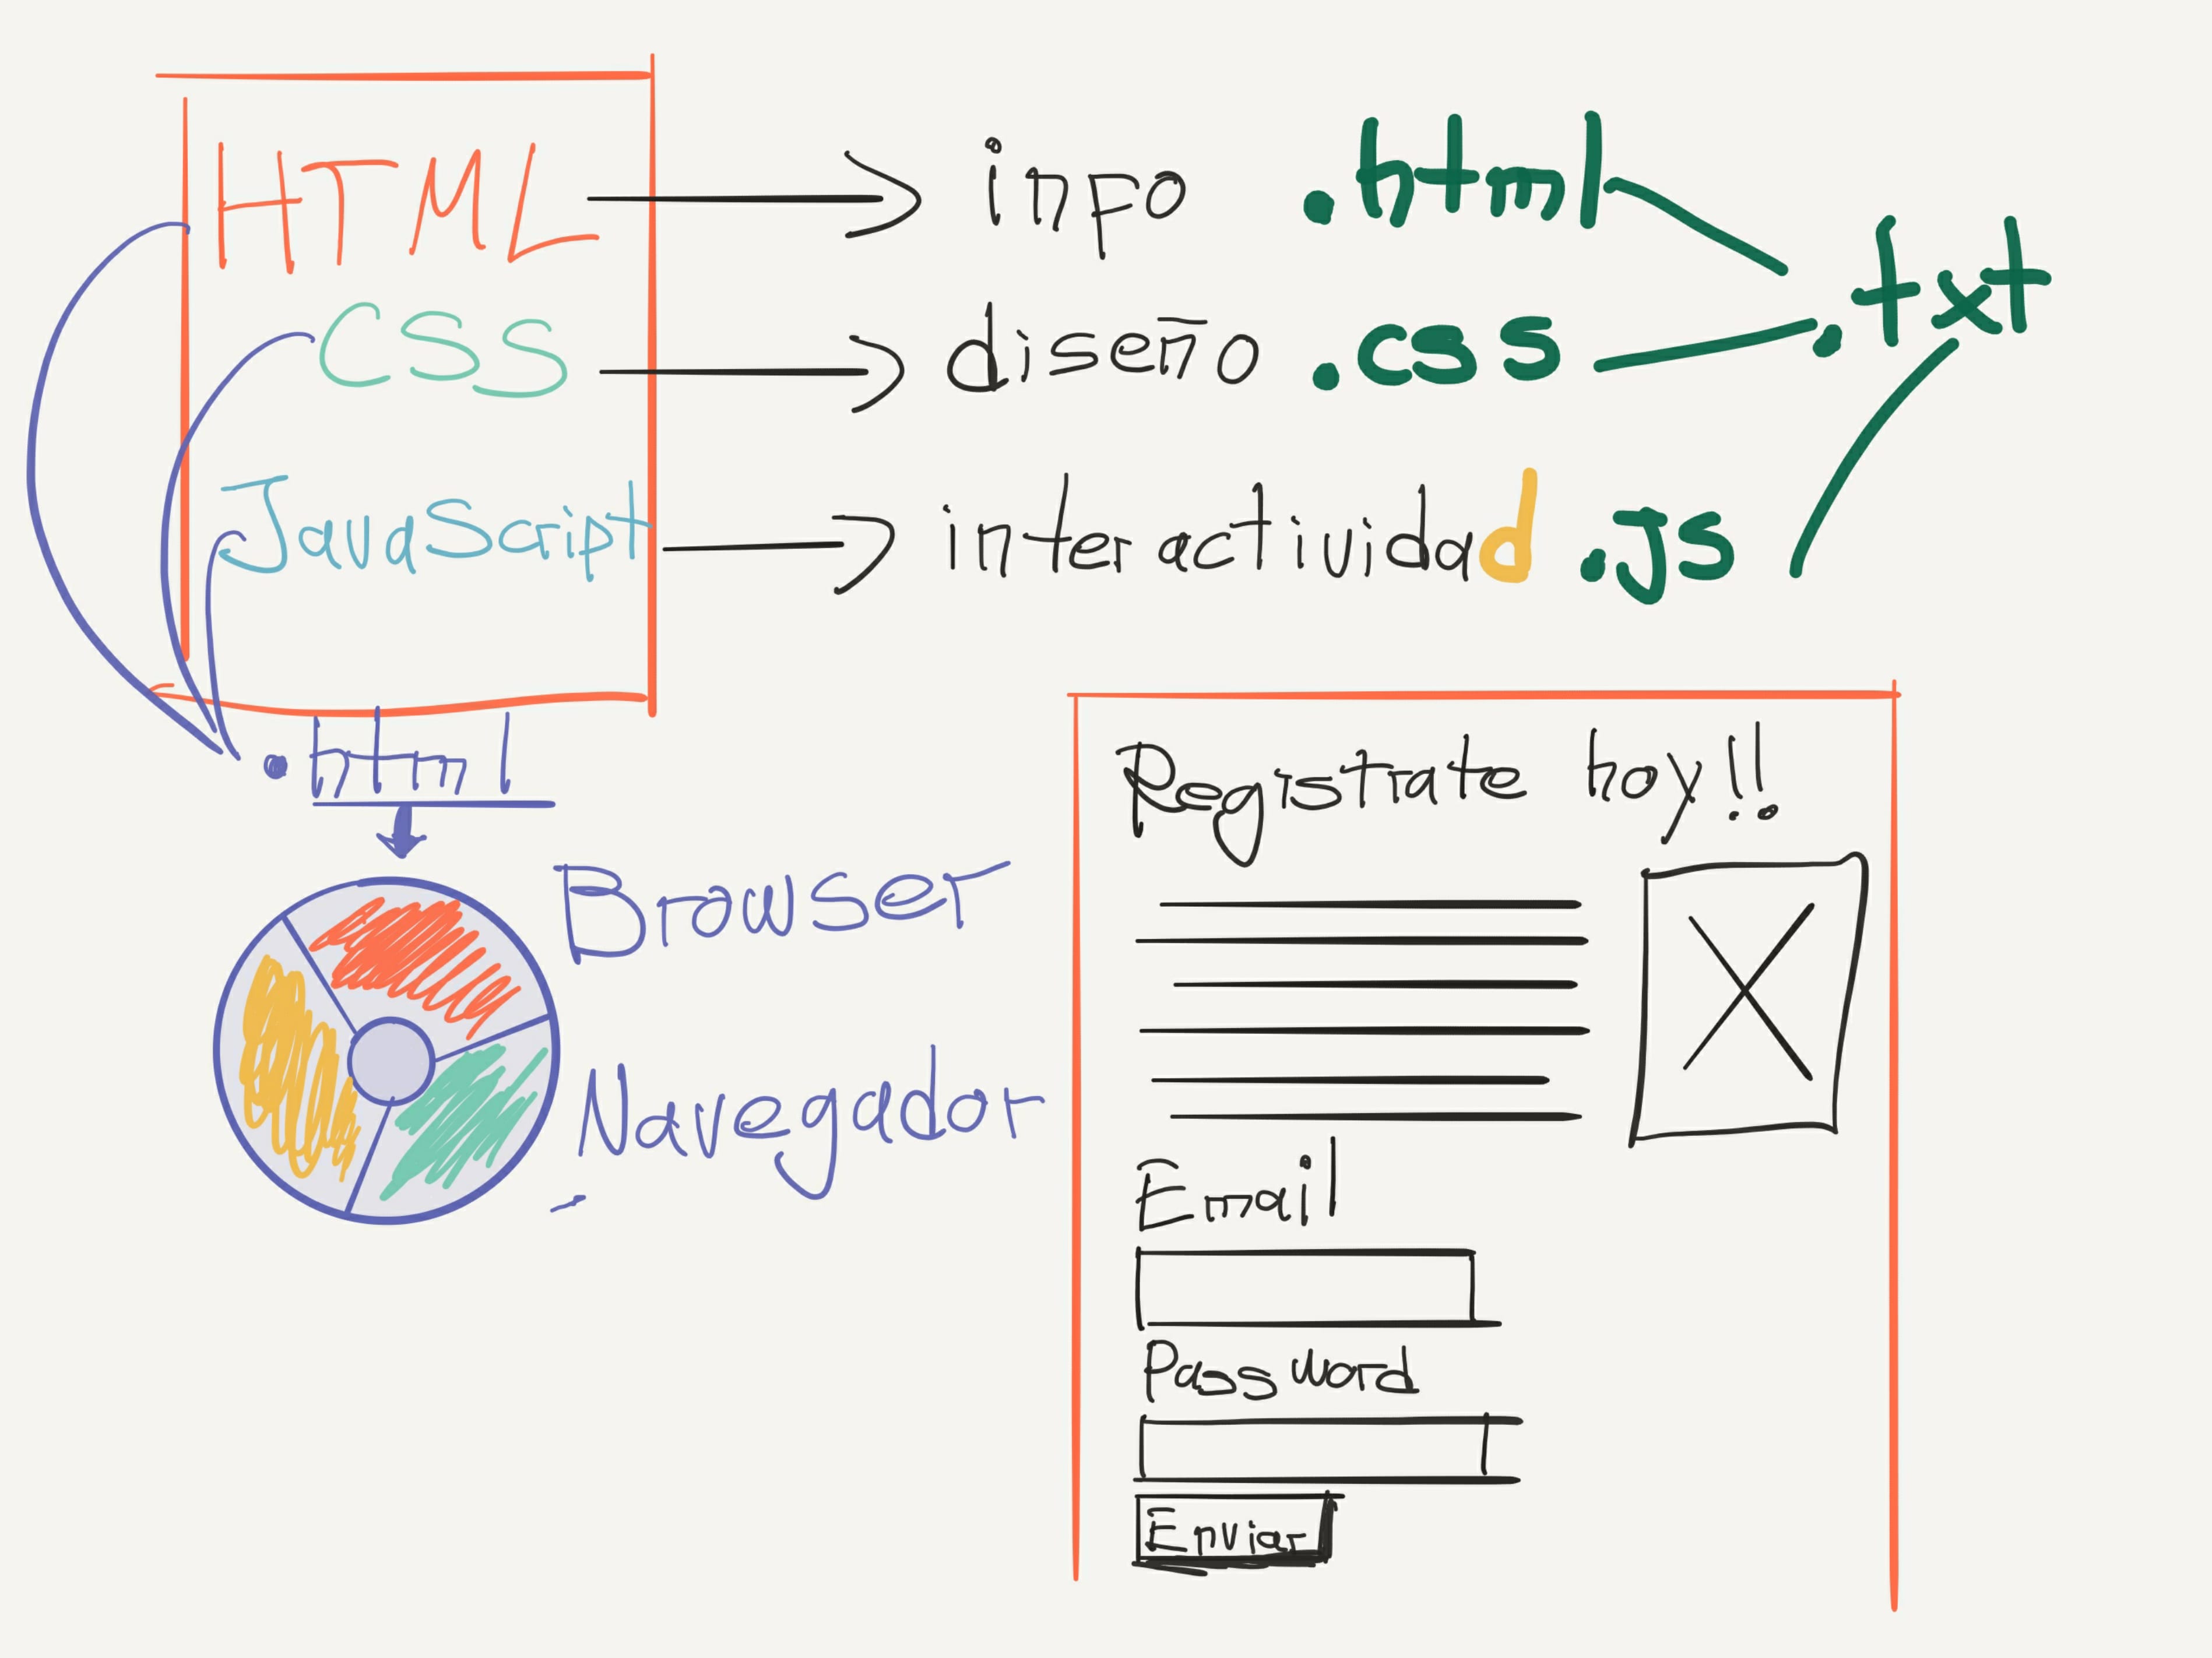 HTML → info .html
CSS → diseño .css
.txt
JavaScript → interactividad .js
.html
Browser
Navegador
Registrate hoy!!
Email
Password
Enviar